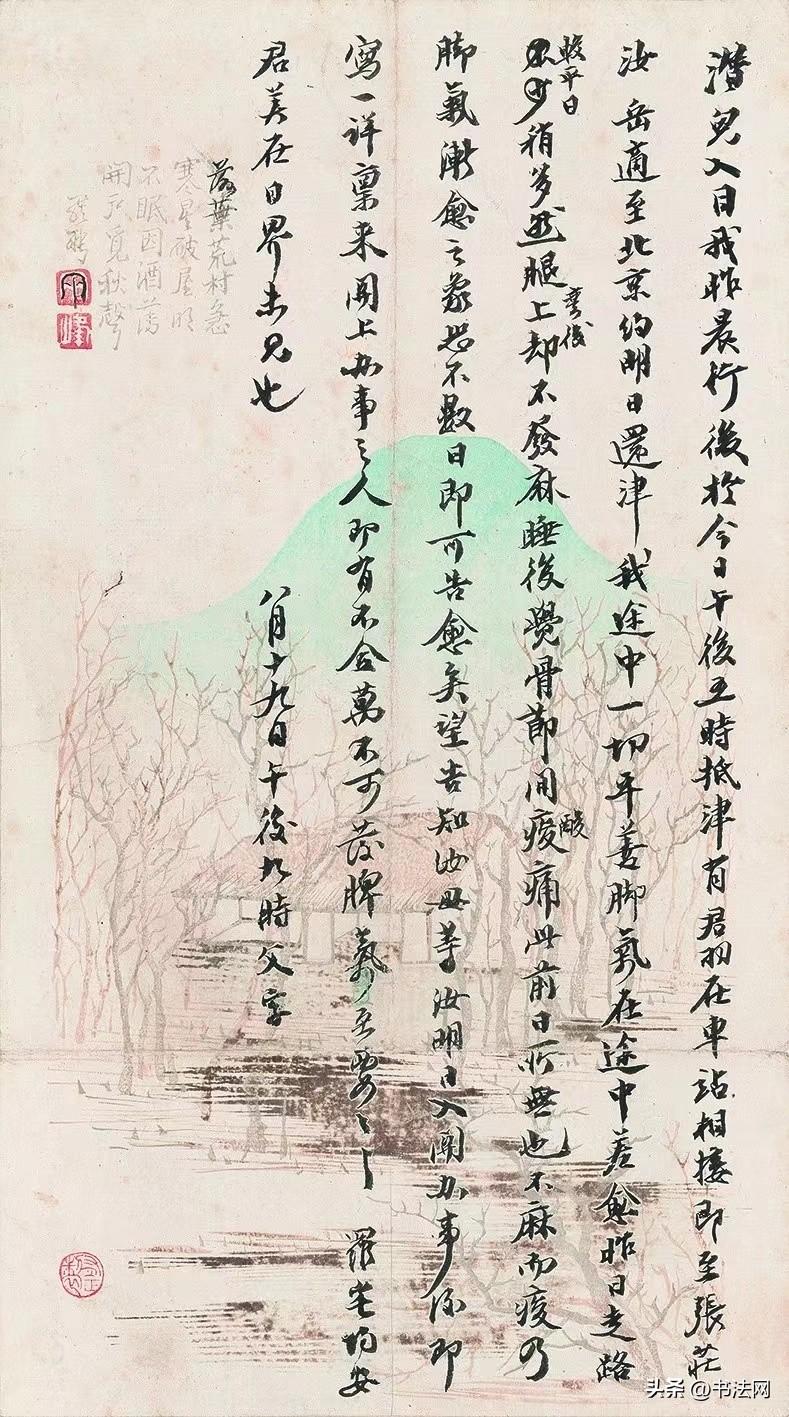 潛兒入目我昨晨行後於今日午後五時抵津有君羽在車站相接即至張莊
汝岳適至北京約明日還津我途中一切平善脚氣在途中差愈昨日走路
較平日
稍多然腿上却不發麻睡後覺骨節間痠痛此前日所無也不麻而痠乃
彎後
酸
脚氣漸愈之象恐不數日即可告愈矣望告知汝母等汝明日入關办事後即
寫一詳稟來關上办事之人即有不合萬不可發脾氣至要々々 羅宅均安
君美在日界未見也
八月十九日午後九時父字
落葉荒村急
寒星破屋明
不眠因酒薄
開戶覓秋聲
羅聘
兩峰
头条 @书法网